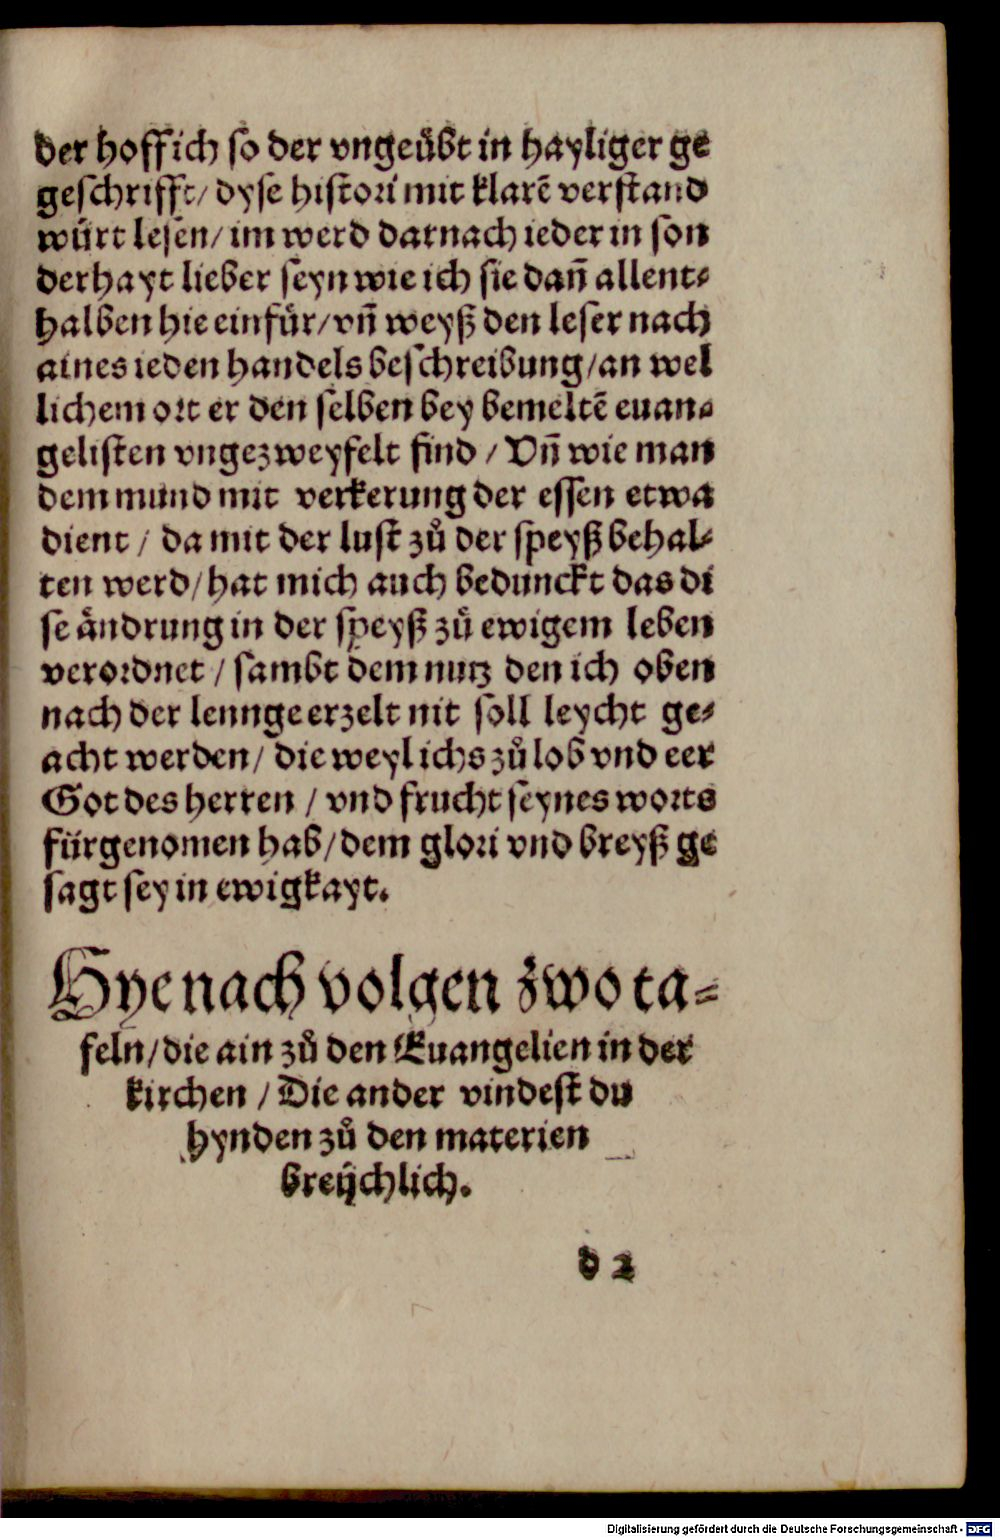 der hoffich so der vngeübt in hayliger ge
geschrifft/ dyse histori mit klarē verstand
würt lesen/ im werd darnach ieder in son
derhayt lieber seyn wie ich sie dañ allent⸗
halben hie einfür/ vñ weyß den leser nach
aines ieden handels beschreibung/ an wel
lichem ort er den selben bey bemeltē euan⸗
gelisten vngezweyfelt find / Vñ wie man
dem mund mit verkerung der essen etwa
dient / da mit der lust zů der speyß behal⸗
ten werd/ hat mich auch bedunckt das di
se åndrung in der speyß zů ewigem leben
verordnet / sambt dem nutz den ich oben
nach der lennge erzelt nit soll leycht ge⸗
acht werden/ die weyl ichs zů lob vnd eer
Got des herren / vnd frucht seynes worts
fürgenomen hab/ dem glori vnd breyß ge
sagt sey in ewigkayt.
Hye nach volgen zwo ta⸗
feln/ die ain zů den Euangelien in der
kirchen / Die ander vindest du
hynden zů den materien
breüchlich.
d 2
Digitalisierung gefördert durch die Deutsche Forschungsgemeinschaft - DFG